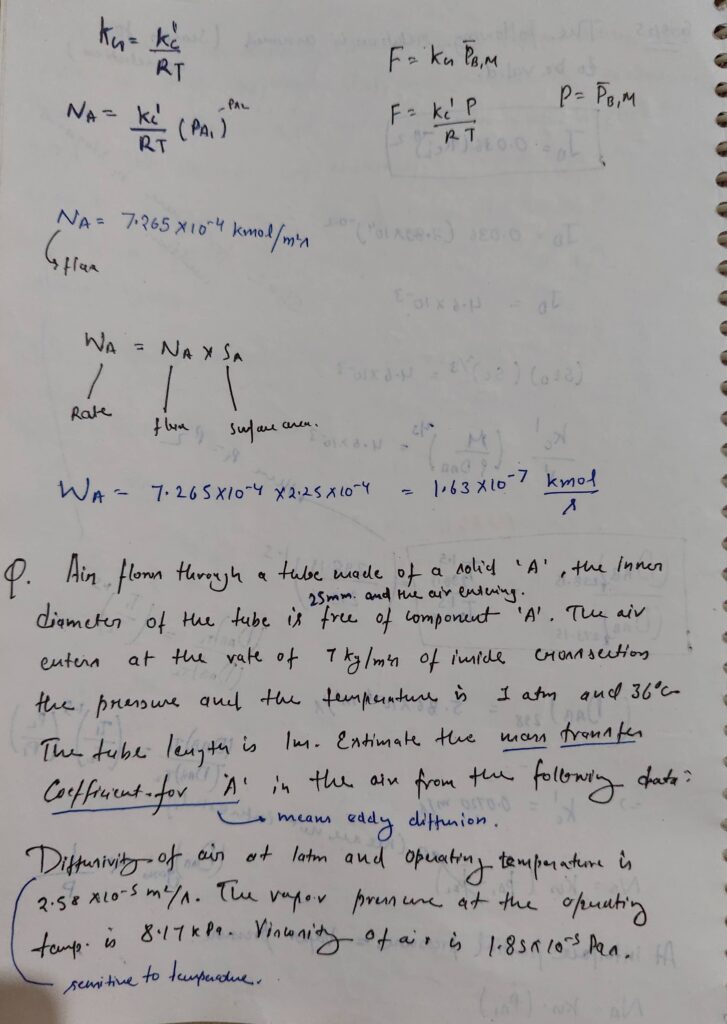 kG = kc'/RT
F = kG P̄B,M
NA = kc'/RT (PA1 - PA2)
F = kc' P/RT
P = P̄B,M
NA = 7.265 x 10⁻⁴ kmol/m²s
flux
WA = NA x SA
Rate flux surface area.
WA = 7.265 x 10⁻⁴ x 2.25 x 10⁻⁴ = 1.63 x 10⁻⁷ kmol/s
Q. Air flows through a tube made of a solid 'A', the inner
25mm. and the air entering.
diameter of the tube is free of component 'A'. The air
enters at the rate of 7 kg/m²s of inside crossection
the pressure and the temperature is 1 atm and 36°C
The tube length is 1m. Estimate the mass transfer
Coefficient for 'A' in the air from the following data:
means eddy diffusion.
Diffusivity of air at 1atm and operating temperature is
2.58 x 10⁻⁵ m²/s. The vapor pressure at the operating
temp. is 8.17 kPa. Viscosity of air is 1.85 x 10⁻⁵ Pa.s.
sensitive to temperature.